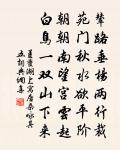 輦路垂楊兩行栽
苑門秋水欲平階
朝朝南望宮雲起
白鳥一雙山下來
姜夔湖上寓居雜咏其
五詩典網奉